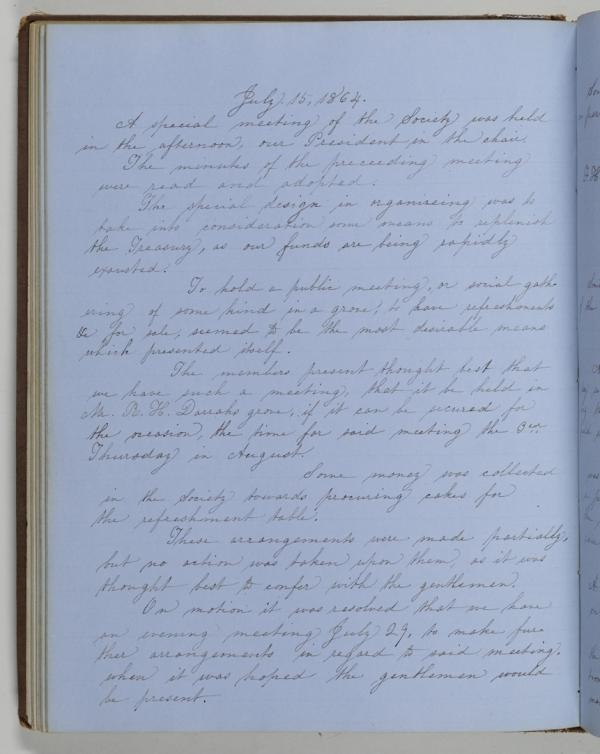 July 15, 1864.
A special meeting of the Society was held
in the afternoon, our President in the chair.
The minutes of the preceeding meeting
were read and adopted.
The special design in organiseing was to
take into consideration some means to replenish
the Treasury, as our funds are being rapidly
exausted.
To hold a public meeting, or social gath-
ering of some kind in a grove, to have refreshments
&c for sale, seemed to be the most desirable means
which presented itself.
The members present thought best that
we have such a meeting, that it be held in
Mr. R. H. Darrahs grove, if it can be secured for
the occasion, the time for said meeting the 3rd
Thursday in August.
Some money was collected
in the Society towards procuring cakes for
the refreshment table.
These arrangements were made partially,
but no action was taken upon them, as it was
thought best to confer with the gentlemen.
On motion it was resolved that we have
an evening meeting July 29, to make fur-
ther arrangements in regard to said meeting,
when it was hoped the gentlemen would
be present.